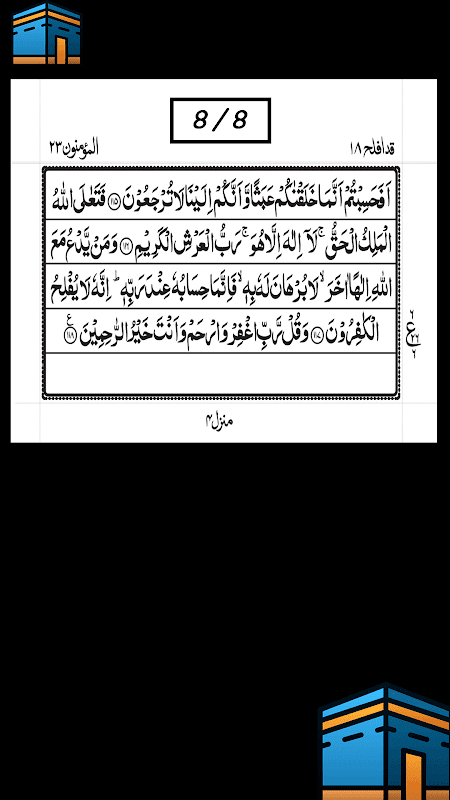 8/8
قد افلح ۱۸
المؤمنون ۲۳
اَفَحَسِبْتُمْ اَنَّمَا خَلَقْنٰكُمْ عَبَثًا وَّ اَنَّكُمْ اِلَيْنَا لَا تُرْجَعُوْنَ ﴿۱۱۵﴾ فَتَعٰلَى اللّٰهُ
الْمَلِكُ الْحَقُّ ۚ لَاۤ اِلٰهَ اِلَّا هُوَ ۚ رَبُّ الْعَرْشِ الْكَرِيْمِ ﴿۱۱۶﴾ وَ مَنْ يَّدْعُ مَعَ
اللّٰهِ اِلٰهًا اٰخَرَ ۙ لَا بُرْهَانَ لَهٗ بِهٖ ۙ فَاِنَّمَا حِسَابُهٗ عِنْدَ رَبِّهٖ ؕ اِنَّهٗ لَا يُفْلِحُ
الْكٰفِرُوْنَ ﴿۱۱۷﴾ وَ قُلْ رَّبِّ اغْفِرْ وَ ارْحَمْ وَ اَنْتَ خَيْرُ الرّٰحِمِيْنَ ﴿۱۱۸﴾
منزل ۴